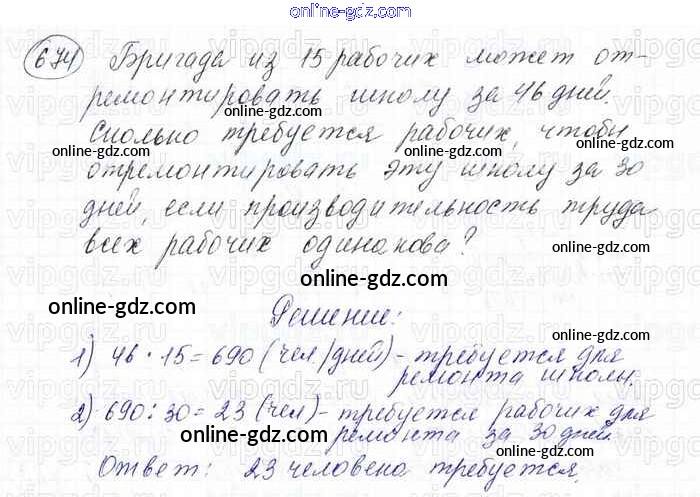 online-gdz.com
674 Бригада из 15 рабочих может от-
ремонтировать школу за 46 дней.
online-gdz.com
Сколько требуется рабочих, чтобы
online-gdz.com
отремонтировать эту школу за 30
дней, если производительность труда
всех рабочих одинакова?
online-gdz.com
online-gdz.com
online-gdz.com
Решение:
1) 46 · 15 = 690 (чел/дней) - требуется для
ремонта школы.
online-gdz.com
2) 690 : 30 = 23 (чел) - требуется рабочих для
ремонта за 30 дней.
online-gdz.com
online-gdz.com
Ответ: 23 человека требуется.
online-gdz.com